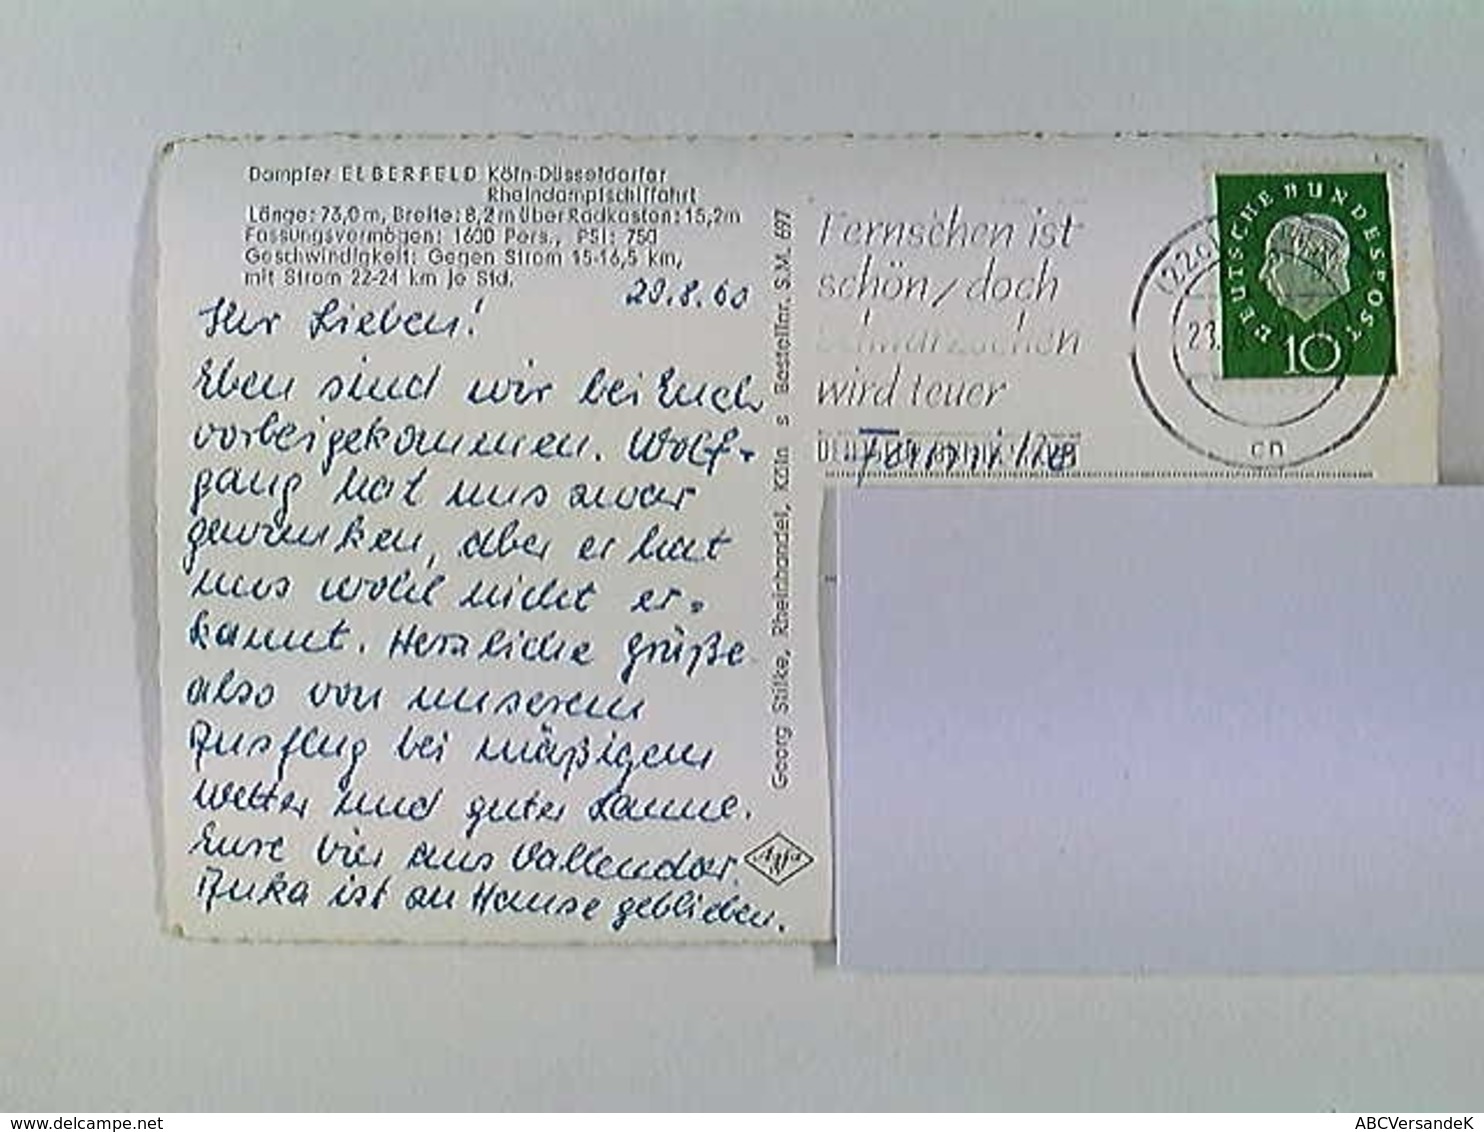 Dampfer ELBERFELD Köln-Düsseldorfer
Rheindampfschiffahrt
Länge: 73,0 m, Breite: 8,2 m über Radkasten: 15,2 m
Fassungsvermögen: 1600 Pers., PSi: 750
Geschwindigkeit: Gegen Strom 15-16,5 km,
mit Strom 22-24 km je Std.
20.8.60
Ihr Lieben!
Eben sind wir bei Euch
vorbeigekommen. Wolf-
gang hat uns zwar
gewunken, aber er hat
uns wohl nicht er-
kannt. Herzliche Grüße
also von unserem
Ausflug bei mäßigem
Wetter und guter Laune.
Eure vier aus Vallendar.
Anka ist zu Hause geblieben.
Georg Stilke, Rheinhandel, Köln s Bestellnr. S.M. 697
Agfa
Fernsehen ist
schön, doch
Schwarzsehen
wird teuer
Familie
(22c)
23.
cn
DEUTSCHE BUNDESPOST
10
www.delcampe.net
ABCVersandeK